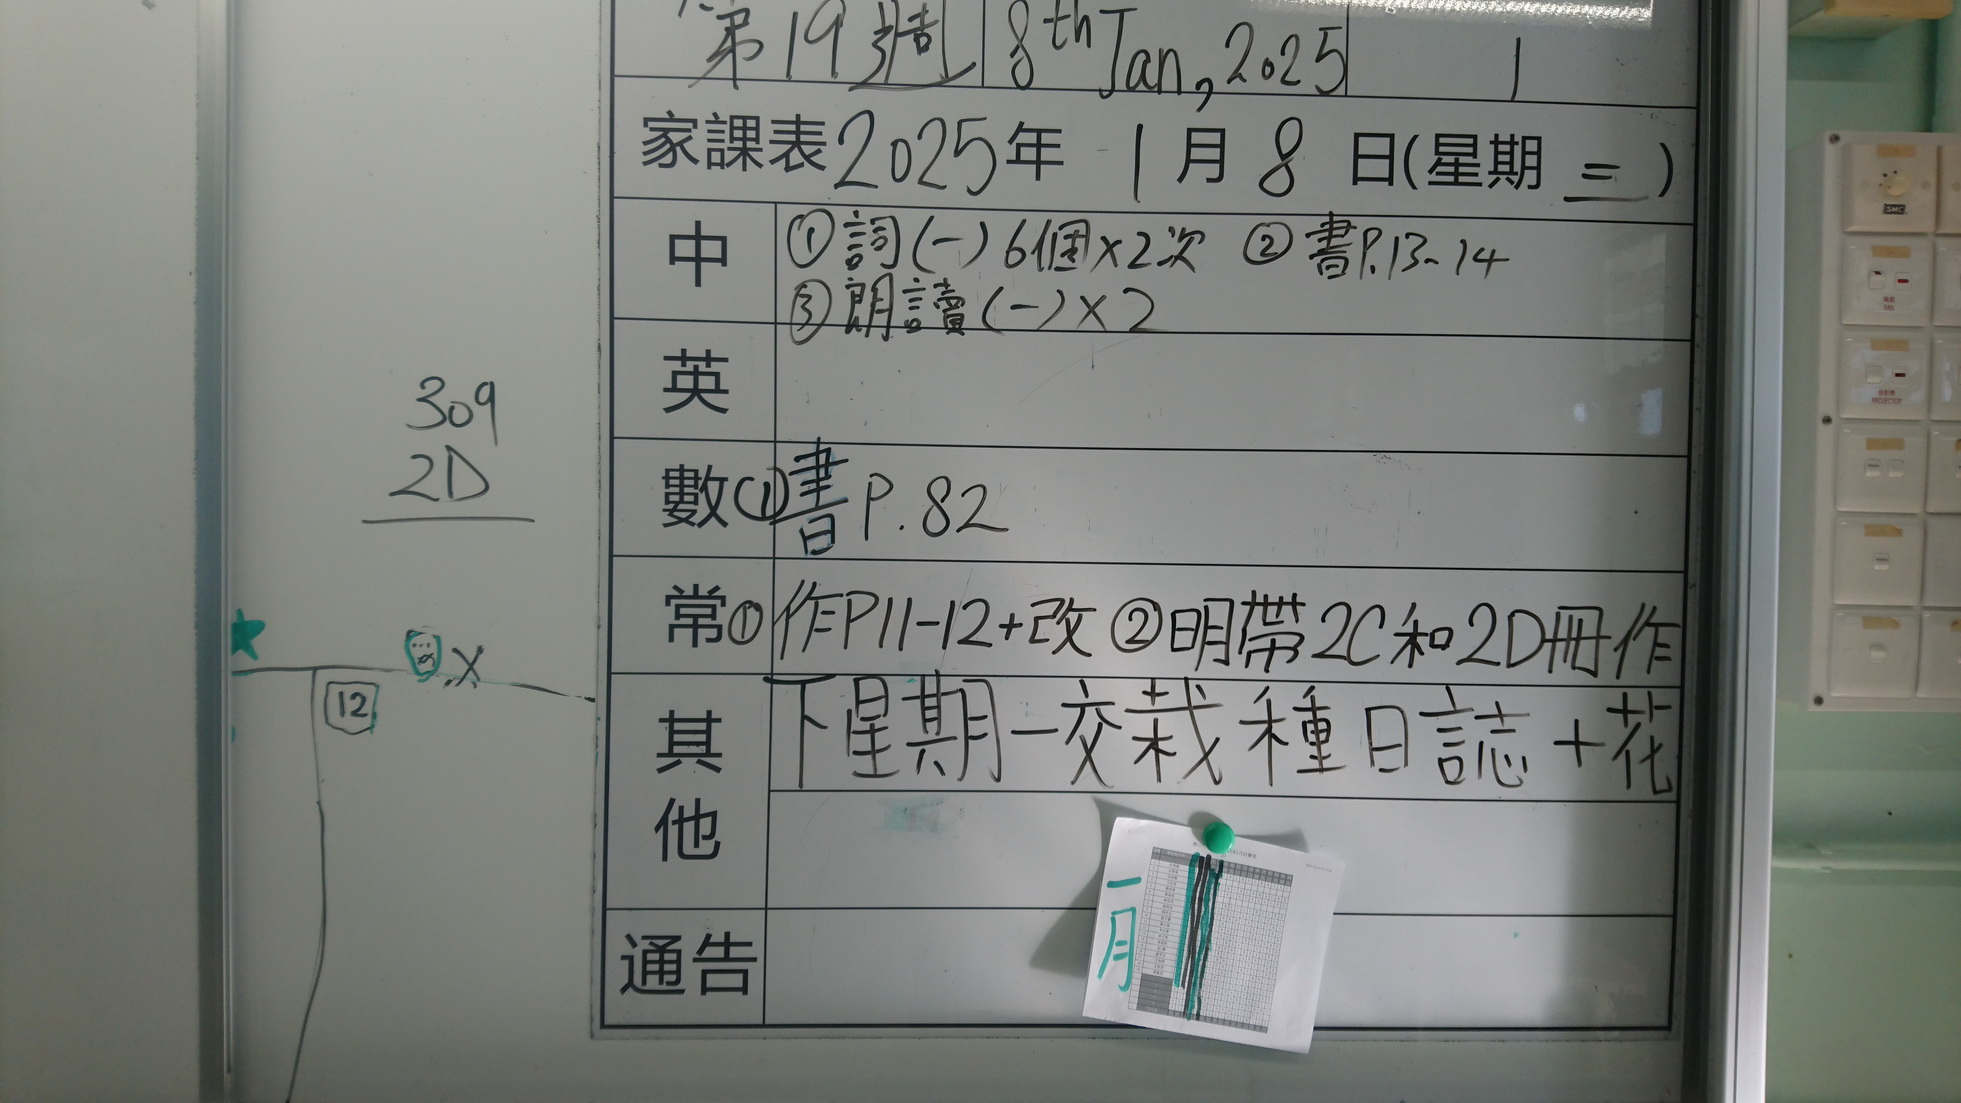 第19週 8th Jan, 2025 1
家課表 2025年 1月 8日(星期三)
中 ①詞(一)6個×2次 ②書P.13-14
③朗讀(一)×2
英
數 ①書P.82
常 ①作P11-12+改 ②明帶2C和2D冊作
其他 下星期一交栽種日誌+花
通告
309
2D
12
X
一月
PROJECTOR